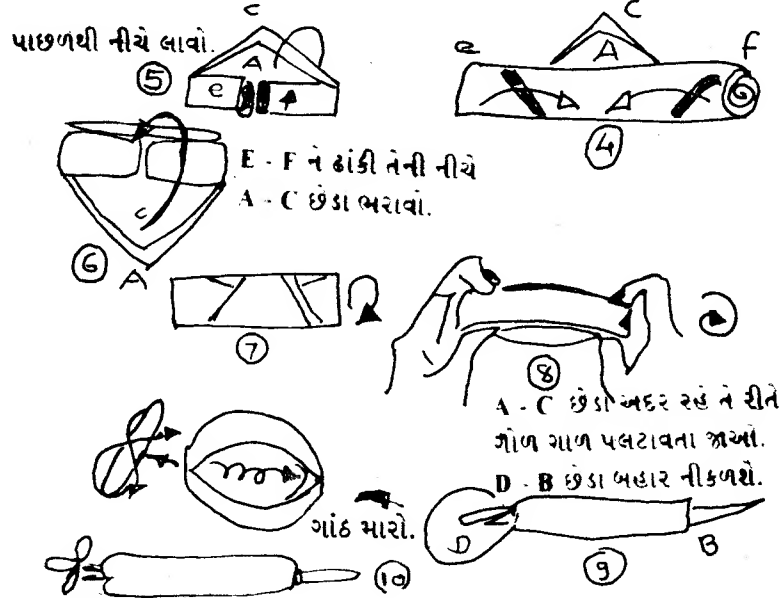 c
પાછળથી નીચે લાવો.
A
5
e
C
A
e
F
4
E - F ને ઢાંકી તેની નીચે
A - C છેડા ભરાવો.
c
6
A
7
8
A - C છેડા અદર રહે તે રીતે
ગોળ ગાળ પલટાવતા જાઓ.
D - B છેડા બહાર નીકળશે.
ગાંઠ મારો.
D
B
9
10